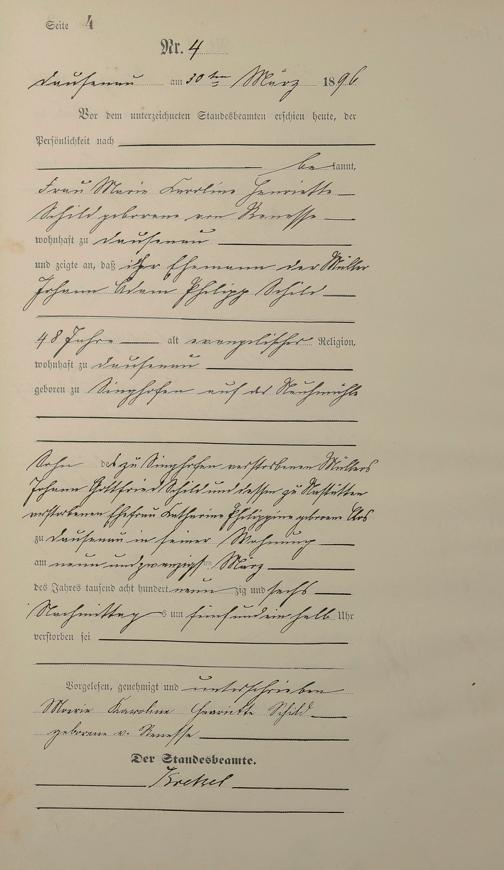 Seite 4
Nr. 4
Dausenau am 30ten März 1896
Vor dem unterzeichneten Standesbeamten erschien heute, der
Persönlichkeit nach
bekannt,
Frau Marie Karoline Henriette
Schild geborene von Renesse
wohnhaft zu Dausenau
und zeigte an, daß ihr Ehemann der Müller
Johann Adam Philipp Schild
48 Jahre alt evangelischer Religion,
wohnhaft zu Dausenau
geboren zu Singhofen auf der Neuhmühle
Sohn des zu Singhofen verstorbenen Müllers
Johann Gottfried Schild und dessen zu Nastätten
verstorbenen Ehefrau Katharine Philippine geborene
zu Dausenau in seiner Wohnung
am neun und zwanzigsten März
des Jahres tausend acht hundert neunzig und sechs
Nachmittags um fünf und ein halb Uhr
verstorben sei
Vorgelesen, genehmigt und unterschrieben
Marie Karoline Henriette Schild
geborene v. Renesse
Der Standesbeamte.
Krekel